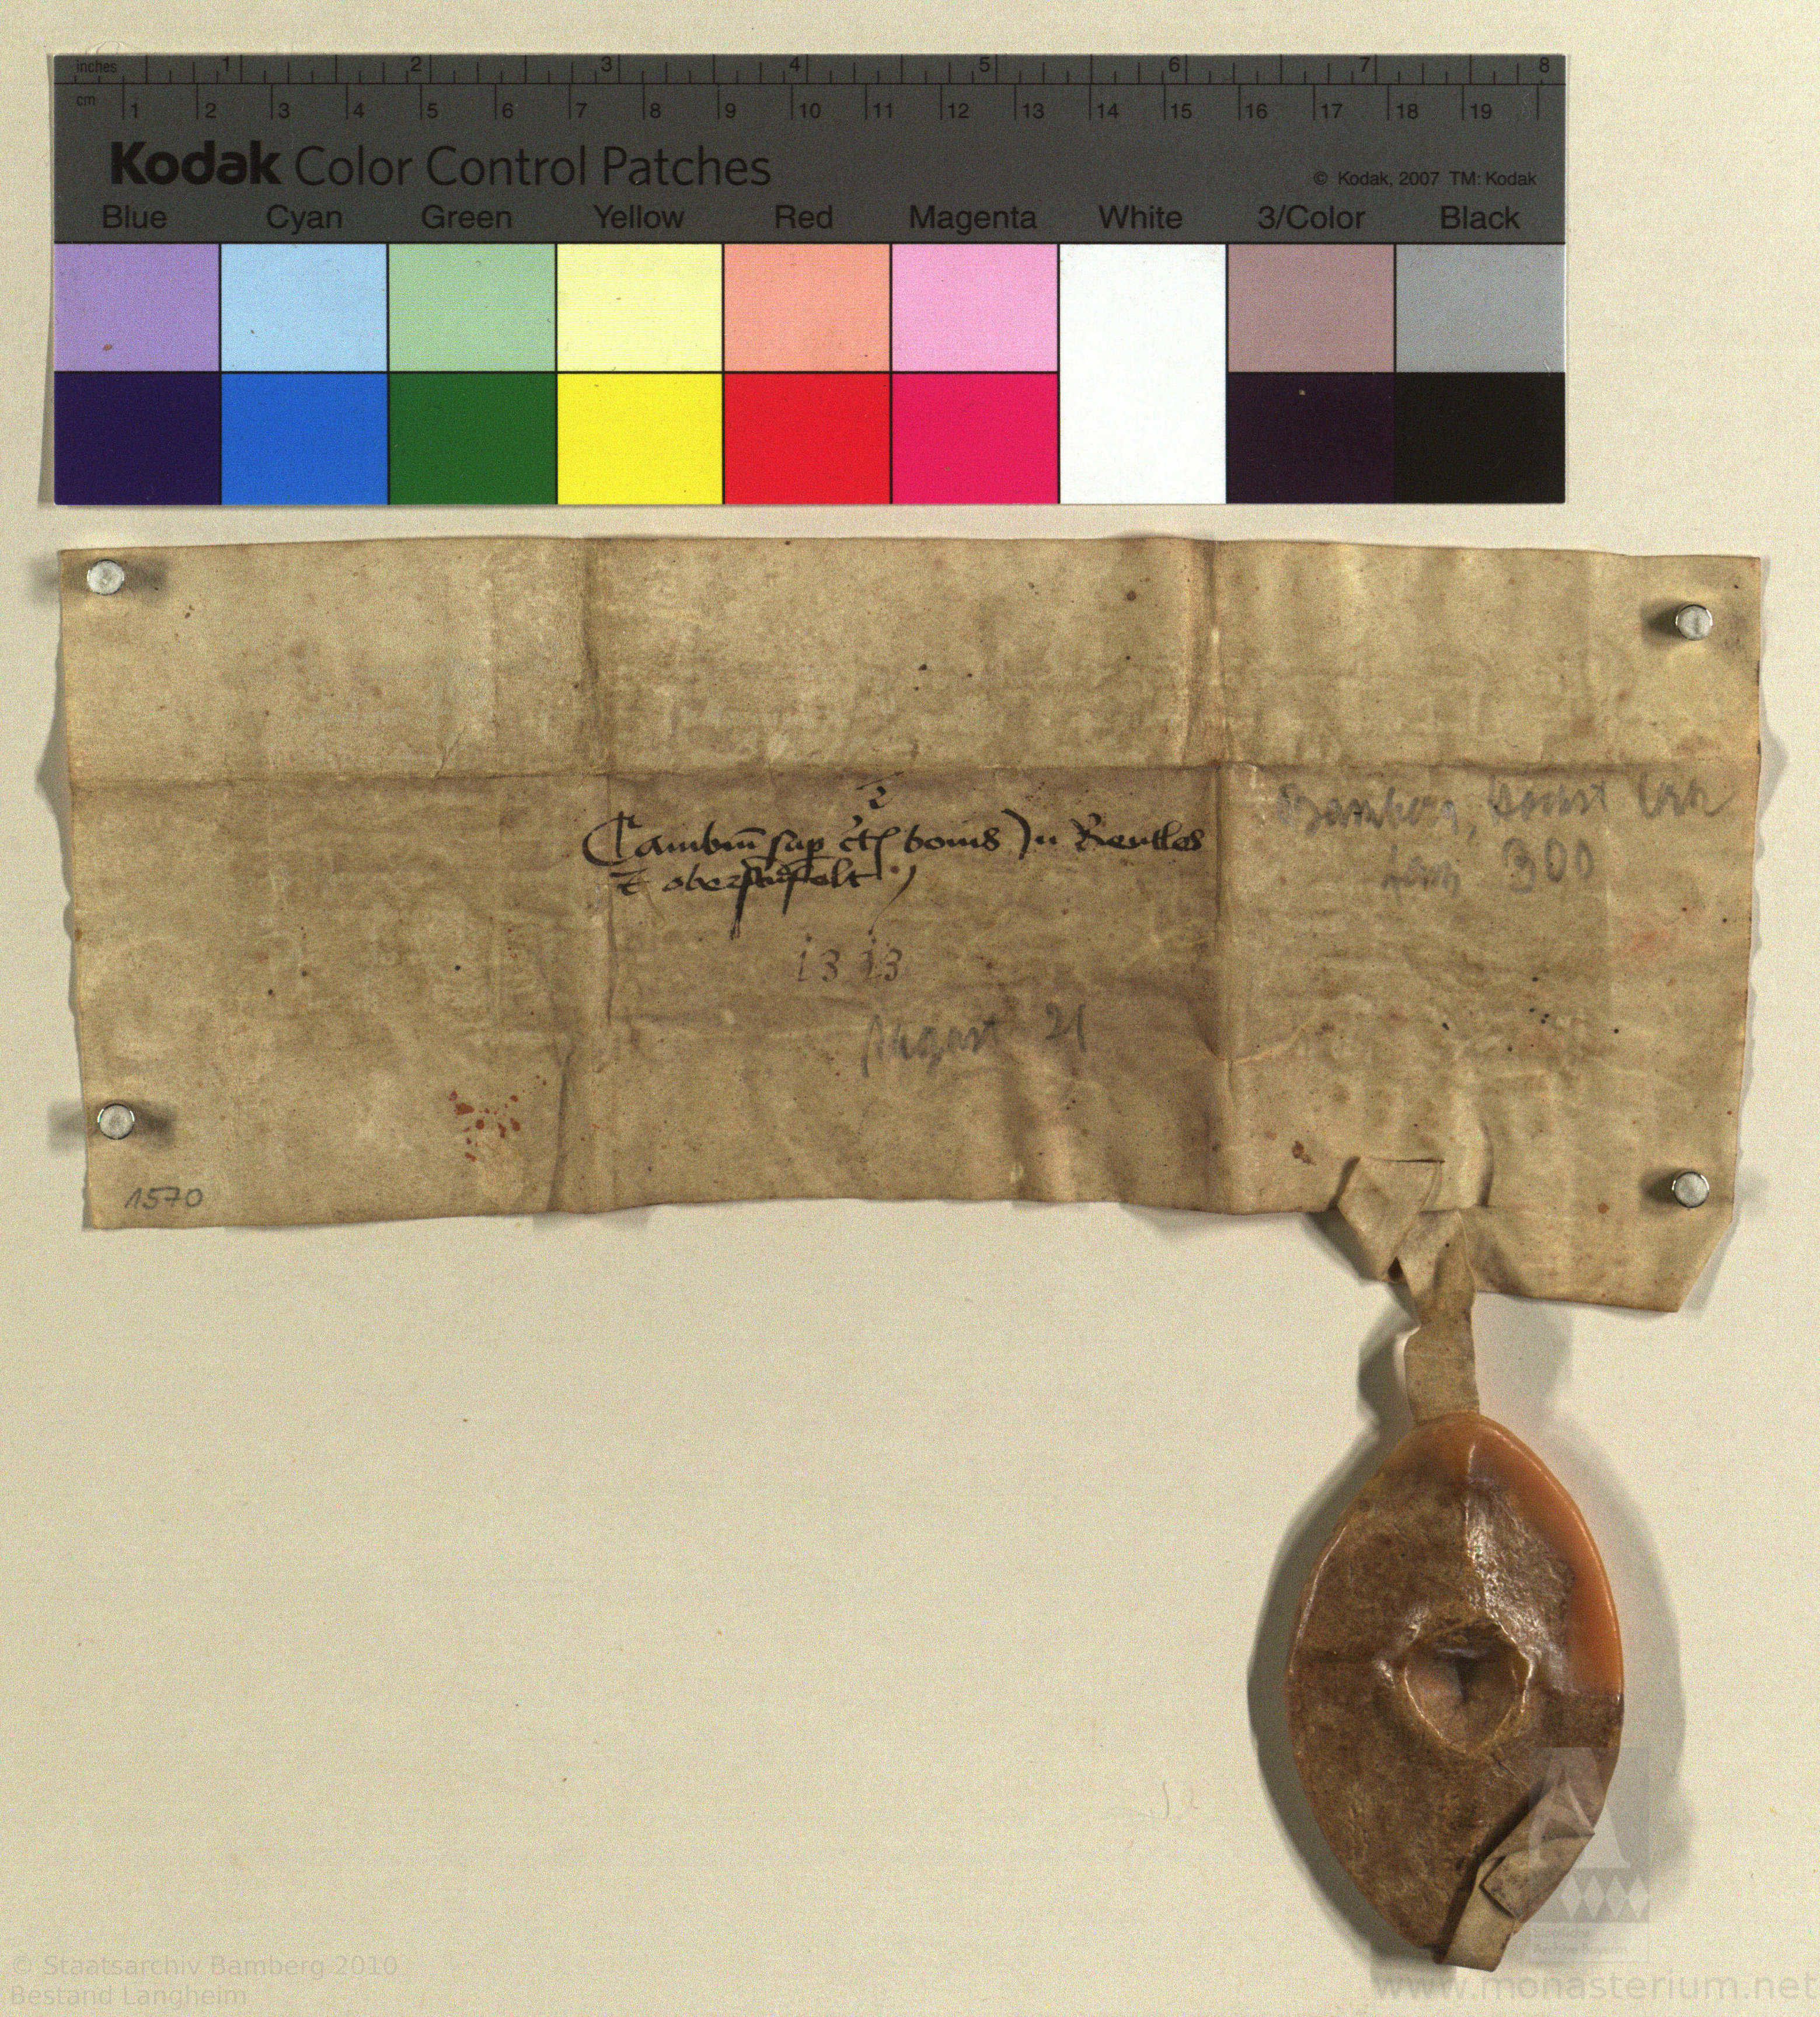 inches 1 2 3 4 5 6 7 8
cm 1 2 3 4 5 6 7 8 9 10 11 12 13 14 15 16 17 18 19
Kodak Color Control Patches
© Kodak, 2007 TM: Kodak
Blue Cyan Green Yellow Red Magenta White 3/Color Black
Cambiū sup c̄t bonis Jn Reutles
⁊ oberfelt
1313
August 21
Bamberg, Hochst Urk
300
1570
© Staatsarchiv Bamberg 2010
Bestand Langheim
www.monasterium.net